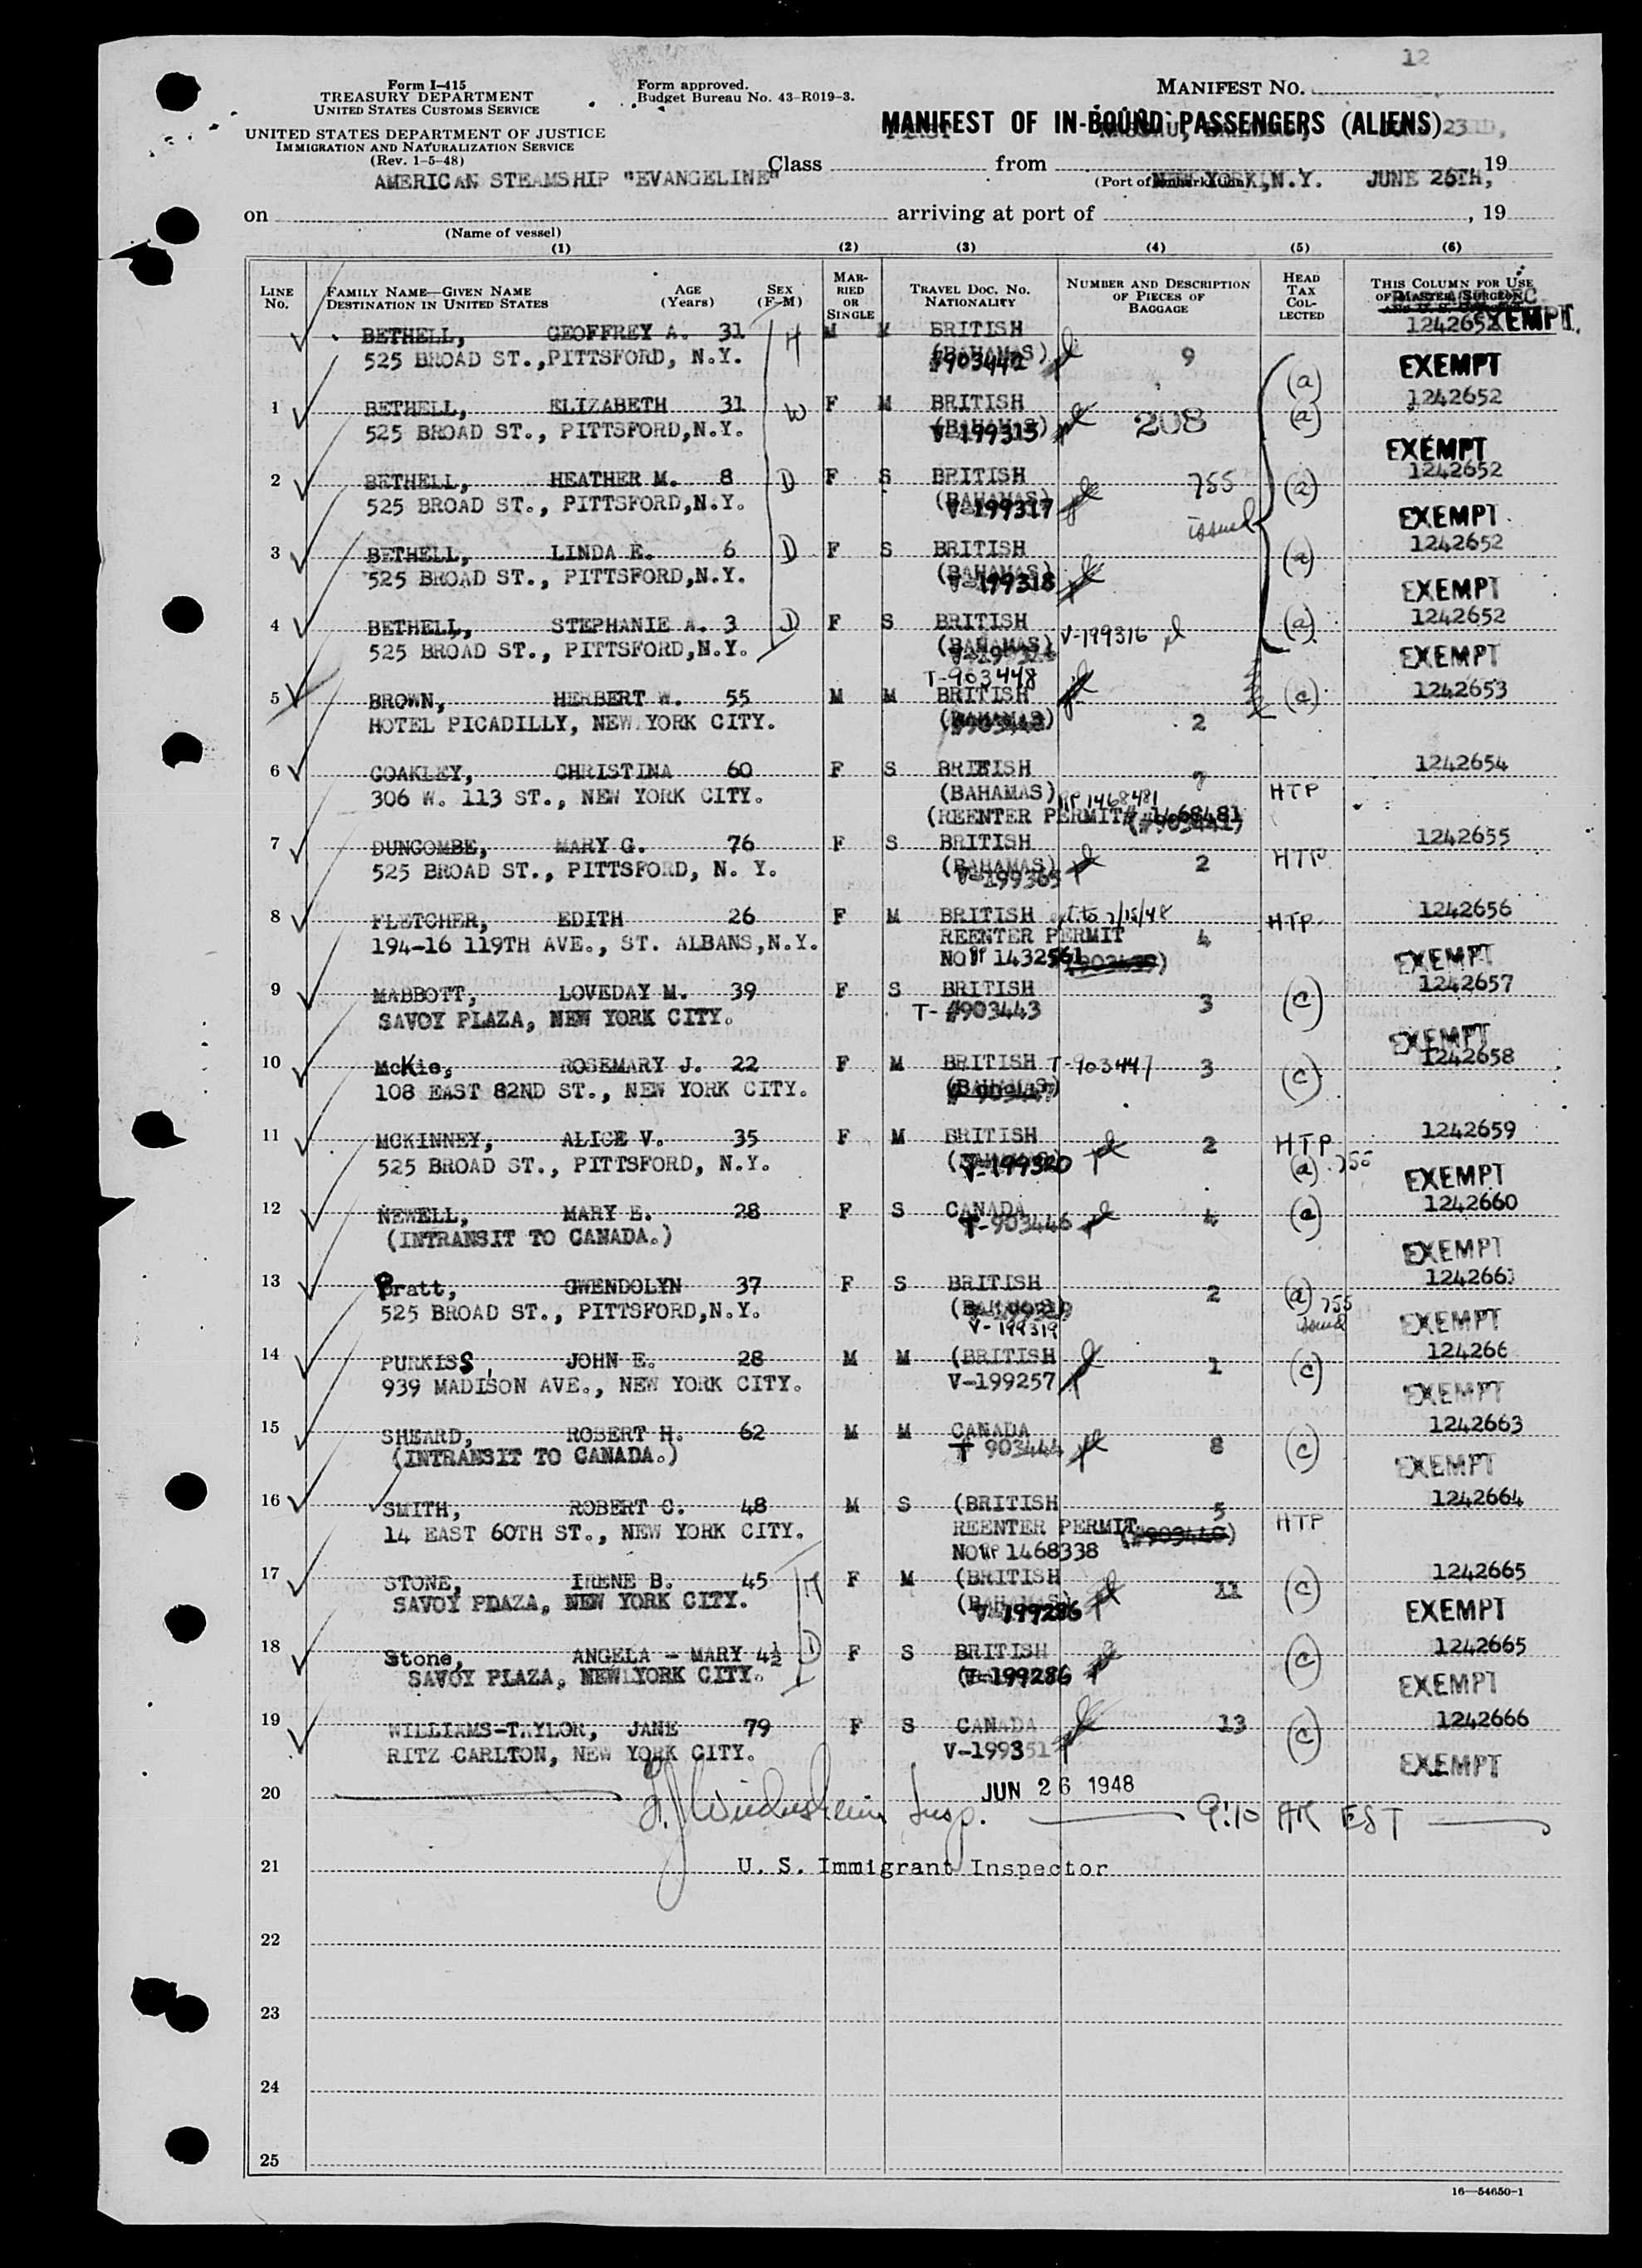 12
Form I-415
TREASURY DEPARTMENT
UNITED STATES CUSTOMS SERVICE
UNITED STATES DEPARTMENT OF JUSTICE
IMMIGRATION AND NATURALIZATION SERVICE
(Rev. 1-5-48)
Form approved.
Budget Bureau No. 43-R019-3.
MANIFEST NO.
MANIFEST OF IN-BOUND PASSENGERS (ALIENS) 23RD,
Class from , 19
AMERICAN STEAMSHIP "EVANGELINE" (Port of embarkation) NEW YORK, N.Y. JUNE 26TH,
on arriving at port of , 19
(Name of vessel)
(1) (2) (3) (4) (5) (6)
LINE No. FAMILY NAME—GIVEN NAME DESTINATION IN UNITED STATES AGE (Years) SEX (F-M) MARRIED OR SINGLE TRAVEL DOC. NO. NATIONALITY NUMBER AND DESCRIPTION OF PIECES OF BAGGAGE HEAD TAX COLLECTED THIS COLUMN FOR USE OF MASTER, SURGEON,
BETHELL, GEOFFREY A. 31 H M M BRITISH 1242652 EXEMPT.
525 BROAD ST., PITTSFORD, N.Y. (BAHAMAS) 9 (a) EXEMPT
1 BETHELL, ELIZABETH 31 W F M BRITISH (a) 1242652
525 BROAD ST., PITTSFORD, N.Y. (BAHAMAS) V-199315 208 EXEMPT
2 BETHELL, HEATHER M. 8 D F S BRITISH 755 (a) 1242652
525 BROAD ST., PITTSFORD, N.Y. (BAHAMAS) V-199317 issued EXEMPT
3 BETHELL, LINDA E. 6 D F S BRITISH (a) 1242652
525 BROAD ST., PITTSFORD, N.Y. (BAHAMAS) V-199318 EXEMPT
4 BETHELL, STEPHANIE A. 3 D F S BRITISH (a) 1242652
525 BROAD ST., PITTSFORD, N.Y. (BAHAMAS) V-199316 EXEMPT
T-903448
5 BROWN, HERBERT W. 55 M M BRITISH (c) 1242653
HOTEL PICADILLY, NEW YORK CITY. (BAHAMAS) 2
6 COAKLEY, CHRISTINA 60 F S BRITISH 7 1242654
306 W. 113 ST., NEW YORK CITY. (BAHAMAS) RP 1468481 HTP
(REENTER PERMIT# 1468481
7 DUNCOMBE, MARY G. 76 F S BRITISH 1242655
525 BROAD ST., PITTSFORD, N. Y. (BAHAMAS) V-199365 2 HTP
8 FLETCHER, EDITH 26 F M BRITISH ext. to 7/15/48 HTP 1242656
194-16 119TH AVE., ST. ALBANS, N.Y. REENTER PERMIT 4
NO RP 1432561 EXEMPT
9 MABBOTT, LOVEDAY M. 39 F S BRITISH 1242657
SAVOY PLAZA, NEW YORK CITY. T- #903443 3 (c)
EXEMPT
10 McKie, ROSEMARY J. 22 F M BRITISH T-903447 3 1242658
108 EAST 82ND ST., NEW YORK CITY. (BAHAMAS) (c)
11 MCKINNEY, ALICE V. 35 F M BRITISH 2 HTP 1242659
525 BROAD ST., PITTSFORD, N.Y. V-199320 (a) 755 EXEMPT
12 NEWELL, MARY E. 28 F S CANADA 4 (a) 1242660
(INTRANSIT TO CANADA.) T-903446 EXEMPT
13 Pratt, GWENDOLYN 37 F S BRITISH 2 (a) 755 1242661
525 BROAD ST., PITTSFORD, N.Y. issued EXEMPT
V-199319
14 PURKISS, JOHN E. 28 M M (BRITISH 1 (c) 124266
939 MADISON AVE., NEW YORK CITY. V-199257 EXEMPT
15 SHEARD, ROBERT H. 62 M M CANADA 8 (c) 1242663
(INTRANSIT TO CANADA.) T 903444 EXEMPT
16 SMITH, ROBERT C. 48 M S (BRITISH 5 1242664
14 EAST 60TH ST., NEW YORK CITY. REENTER PERMIT HTP
NO RP 1468338
17 STONE, IRENE B. 45 M F M (BRITISH 11 (c) 1242665
SAVOY PLAZA, NEW YORK CITY. (BAHAMAS) V-199286 EXEMPT
18 Stone, ANGELA - MARY 4½ D F S BRITISH (c) 1242665
SAVOY PLAZA, NEW YORK CITY. V-199286 EXEMPT
19 WILLIAMS-TAYLOR, JANE 79 F S CANADA 13 (c) 1242666
RITZ CARLTON, NEW YORK CITY. V-199351 EXEMPT
20 Insp. JUN 26 1948 9:10 AM EST
21 U. S. Immigrant Inspector
22
23
24
25
16—54650-1